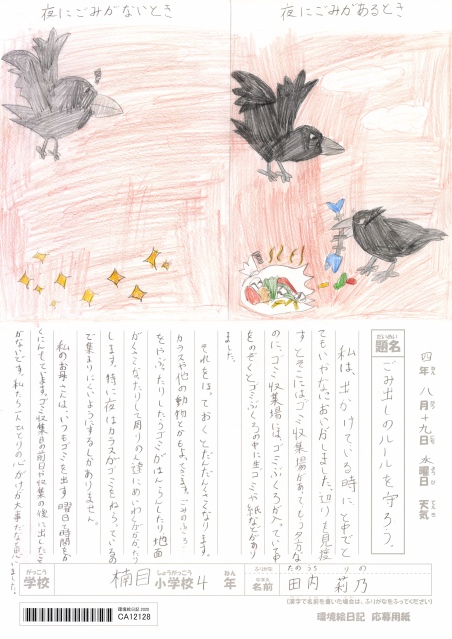 夜にごみがないとき
夜にごみがあるとき
四年 八月 十九日 水曜日 天気
題名 ごみ出しのルールを守ろう。
私は、出かけている時に、と中でと
てもいやなにおいがしました。辺りを見渡
すとそこにはゴミ収集場があて、もう夕方な
のにゴミ収集場には、ゴミぶくろが入っていま
をのぞくとゴミぶくろの中に生ゴミや紙などがあり
ました。
それをほっておくとだんだんくさくなります。
カラスや他の動物とかもよってきます。ごみのふくろ
をやぶったりしたらゴミがはんらんしたり地面
がくさくなったりして周りの人達にめいわくがかかったり
します。特に夜はカラスがゴミをねらっているの
で集まりにくいようにするしかありません。
私のお母さんは、いつもゴミを出す曜日と時間をか
くにんしています。ゴミ収集日の前日や収集の後に出したこと
がないです。私たち一人ひとりの心がけが大事だなと思いました。
がっこう 学校
楠目 小学校 しょうがっこう
4 年 ねん
ふりがな たのうち りの
なまえ 名前 田内 莉乃
(漢字で名前を書いた場合は、ふりがなをふってください)
環境絵日記 2020
CA12128
環境絵日記 応募用紙